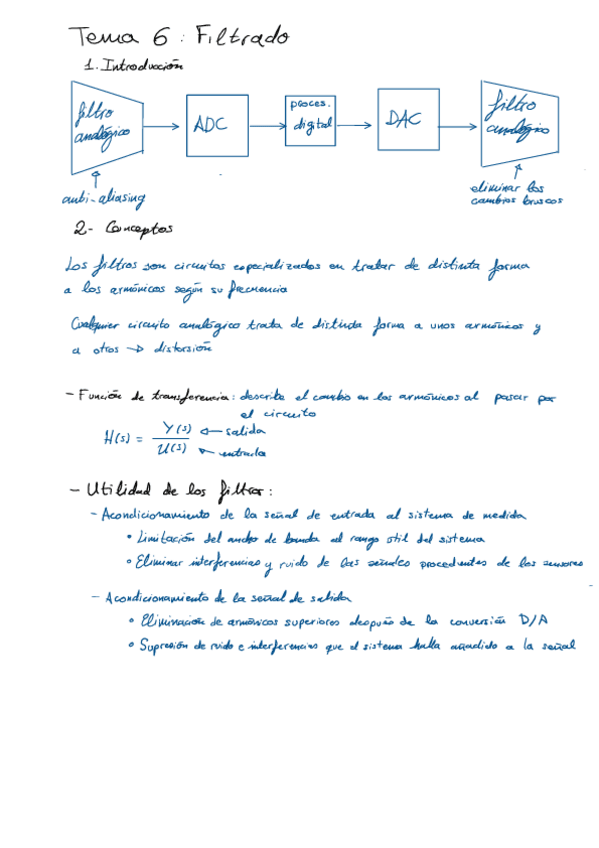 Tema 6: Filtrado
1. Introducción
filtro analógico
ADC
proces. digital
DAC
filtro analógico
anti-aliasing
eliminar los cambios bruscos
2- Conceptos
Los filtros son circuitos especializados en tratar de distinta forma
a los armónicos según su frecuencia
Cualquier circuito analógico trata de distinta forma a unos armónicos y
a otros → distorsión
- Función de transferencia: describe el cambio en los armónicos al pasar por
el circuito
H(s) = Y(s) / U(s)
← salida
← entrada
- Utilidad de los filtros:
- Acondicionamiento de la señal de entrada al sistema de medida
• Limitación del ancho de banda al rango útil del sistema
• Eliminar interferencias y ruido de las señales procedentes de los sensores
- Acondicionamiento de la señal de salida
• Eliminación de armónicos superiores después de la conversión D/A
• Supresión de ruido e interferencias que el sistema halla añadido a la señal